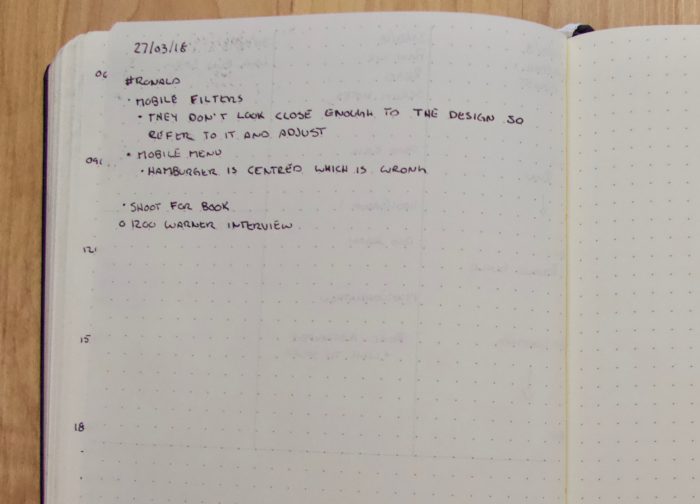 27/03/18
06
#RONALD
· MOBILE FILTERS
· THEY DON'T LOOK CLOSE ENOUGH TO THE DESIGN SO
REFER TO IT AND ADJUST
· MOBILE MENU
09
· HAMBURGER IS CENTRED WHICH IS WRONG
· SHOOT FOR BOOK
O 1200 WARNER INTERVIEW
12
15
18